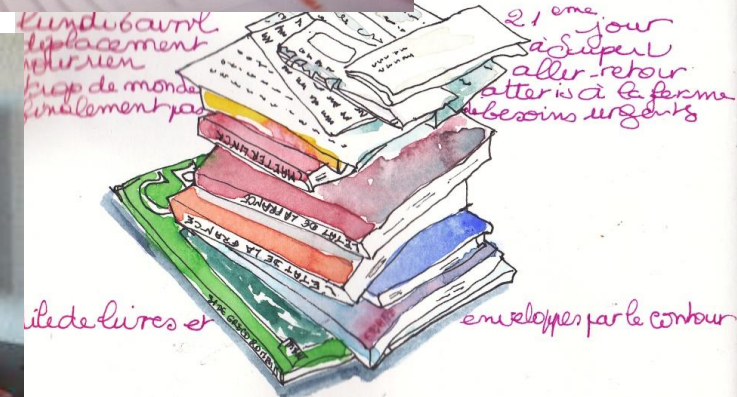 lundi 6 avril
déplacement
pour rien
trop de monde
finalement pas
21 eme jour
à Super U
aller-retour
atteris à la ferme
besoins urgents
MAETERLINCK
L'ETAT DE LA FRANCE
L'ETAT DE LA FRANCE
pile de livres et
enveloppes par le contour